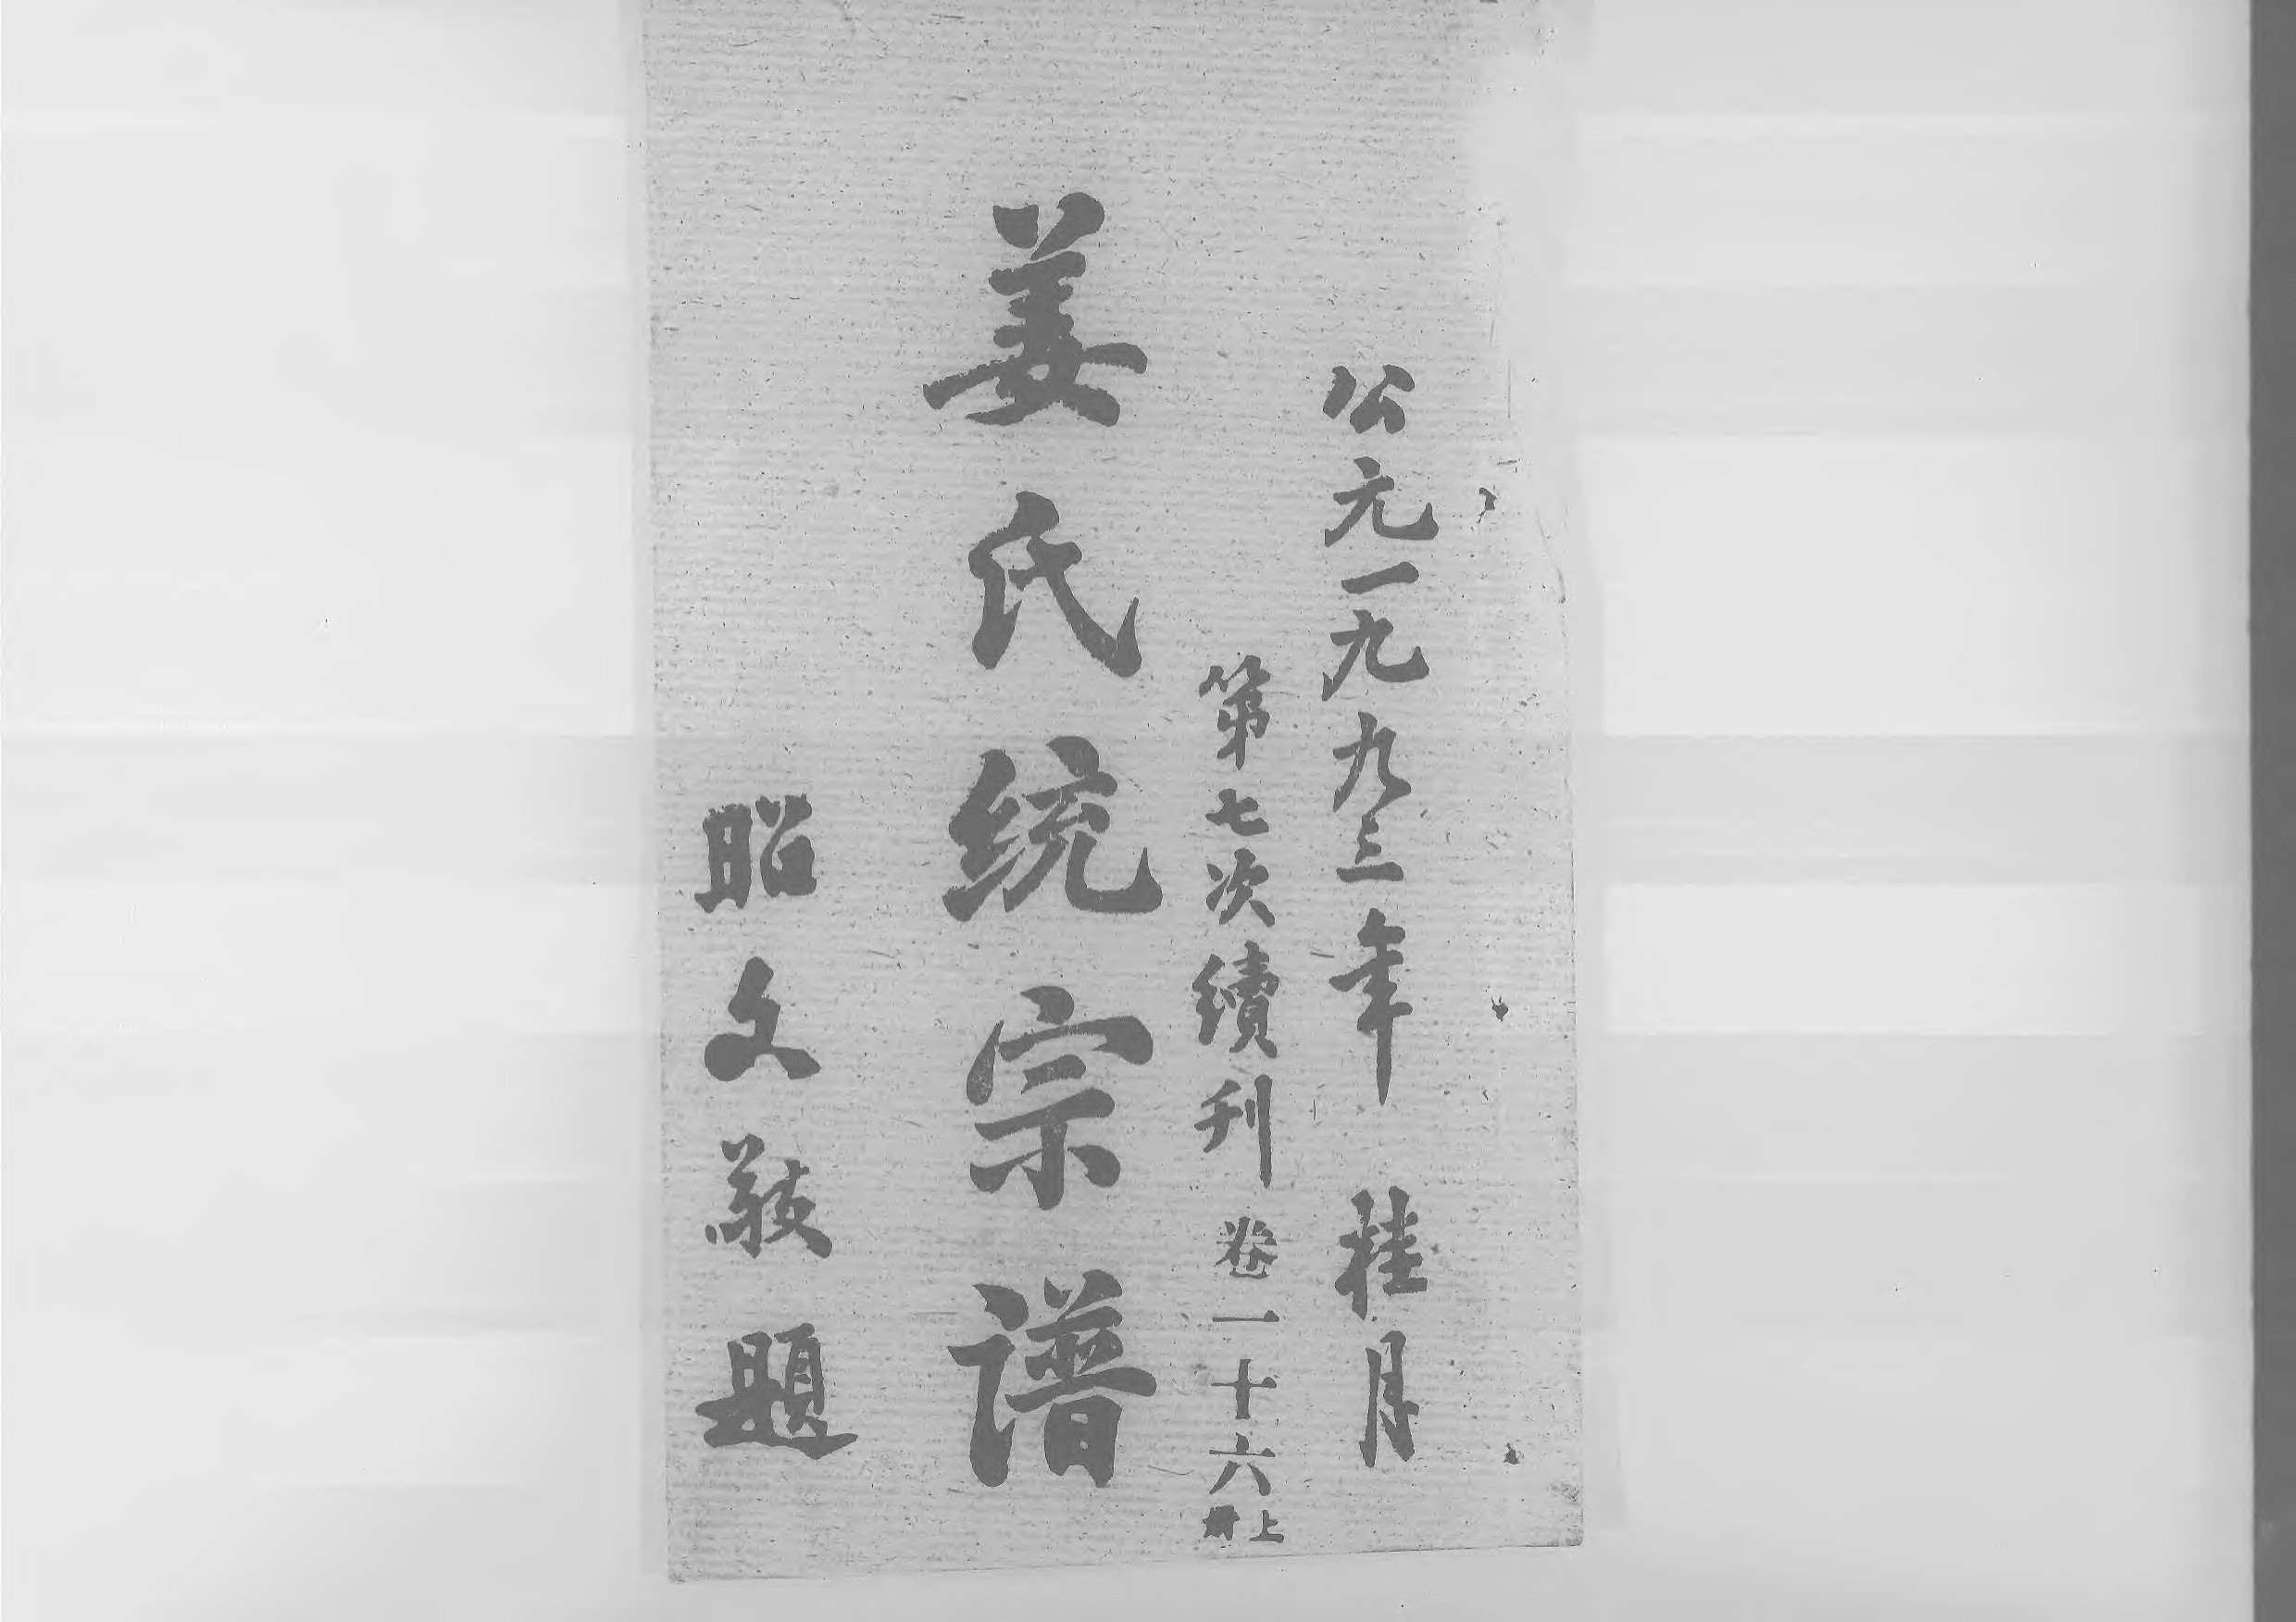 公元一九九三年 桂月
第七次續刊 卷一十六上册
姜氏统宗谱
昭文敬題